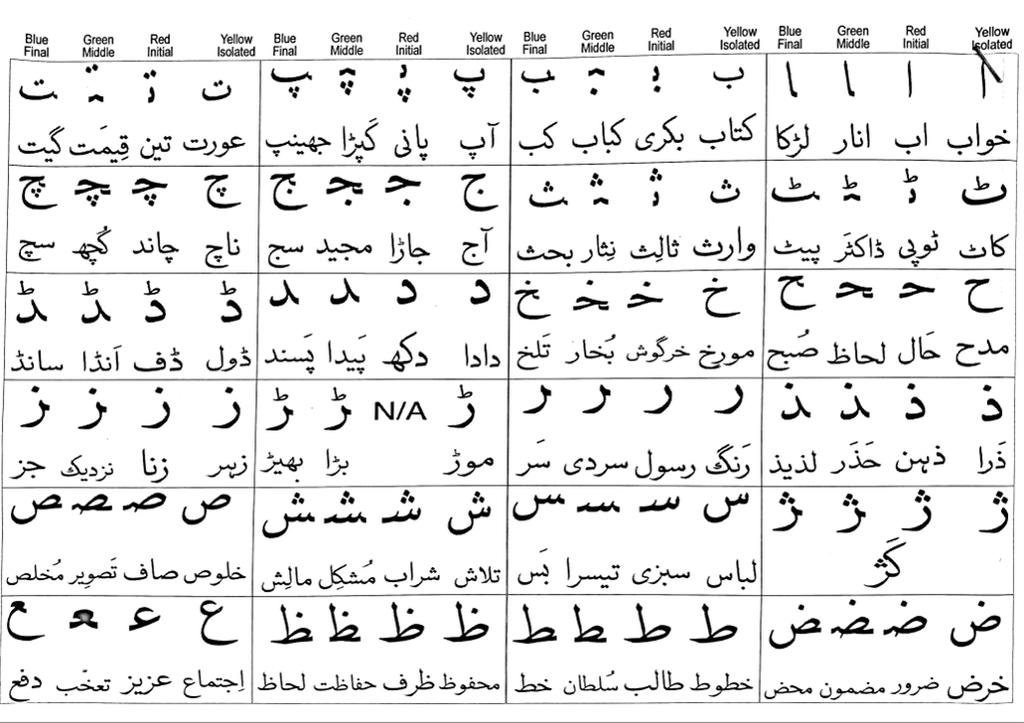 Blue Green Red Yellow Blue Green Red Yellow Blue Green Red Yellow Blue Green Red Yellow
Final Middle Initial Isolated Final Middle Initial Isolated Final Middle Initial Isolated Final Middle Initial Isolated
ا ا ـا ـا ب بـ ـبـ ـب پ پـ ـپـ ـپ ت تـ ـتـ ـت
خواب اب انار لڑکا کتاب بکری کباب کب آپ پانی کَپڑا جھینپ عورت تین قِیمَت گیت
ٹ ٹـ ـٹـ ـٹ ث ثـ ـثـ ـث ج جـ ـجـ ـج چ چـ ـچـ ـچ
کاٹ ٹوپی ڈاکٹَر پیٹ وارث ثالِث نِثار بحث آج جاڑا مجید سج ناچ چاند کُچھ سچ
ح حـ ـحـ ـح خ خـ ـخـ ـخ د د ـد ـد ڈ ڈ ـڈ ـڈ
مدح حَال لحاظ صُبح مورخ خرگوش بُخار تَلخ دادا دکھ پَیدا پَسند ڈول ڈف اَنڈا سانڈ
ذ ذ ـذ ـذ ر ر ـر ـر ڑ N/A ـڑ ـڑ ز ز ـز ـز
ذَرا ذہن حَذَر لذیذ رَنگ رسول سردی سَر موڑ بڑا بھیڑ زہر زنا نزدیک جز
ژ ژ ـژ ـژ س سـ ـسـ ـس ش شـ ـشـ ـش ص صـ ـصـ ـص
کَژ لباس سبزی تیسرا بَس تلاش شراب مُشکِل مالِش خلوص صاف تَصویر مُخلص
ض ضـ ـضـ ـض ط طـ ـطـ ـط ظ ظـ ـظـ ـظ ع عـ ـعـ ـع
خرض ضرور مضمون محض خطوط طالب سُلطان خط محفوظ ظرف حفاظت لحاظ اِجتماع عزیز تعخّب دفع